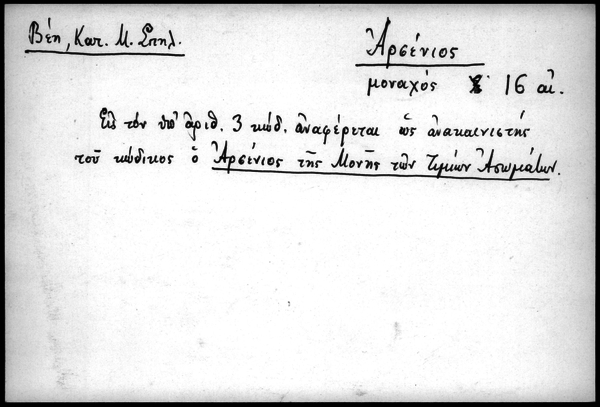 Βέη, Κατ. Μ. Σπηλ.
Ἀρσένιος
μοναχός 16 αἰ.
Εἰς τόν ὑπ' ἀριθ. 3 κώδ. ἀναφέρεται ὡς ἀνακαινιστής
τοῦ κώδικος ὁ Ἀρσένιος τῆς Μονῆς τῶν Τιμίων Ἀσωμάτων.